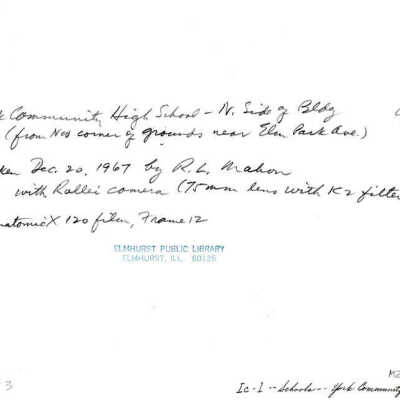 k Community High School - N. Side of Bldg
(from NW corner of grounds near Elm Park Ave.)
ken Dec. 20, 1967 by R. L. Mahon
with Rollei camera (75mm lens with K2 filter
natomic X 120 film, Frame 12
ELMHURST PUBLIC LIBRARY
ELMHURST, ILL. 60126
MZ
3
Ic-1 -- Schools -- York Community